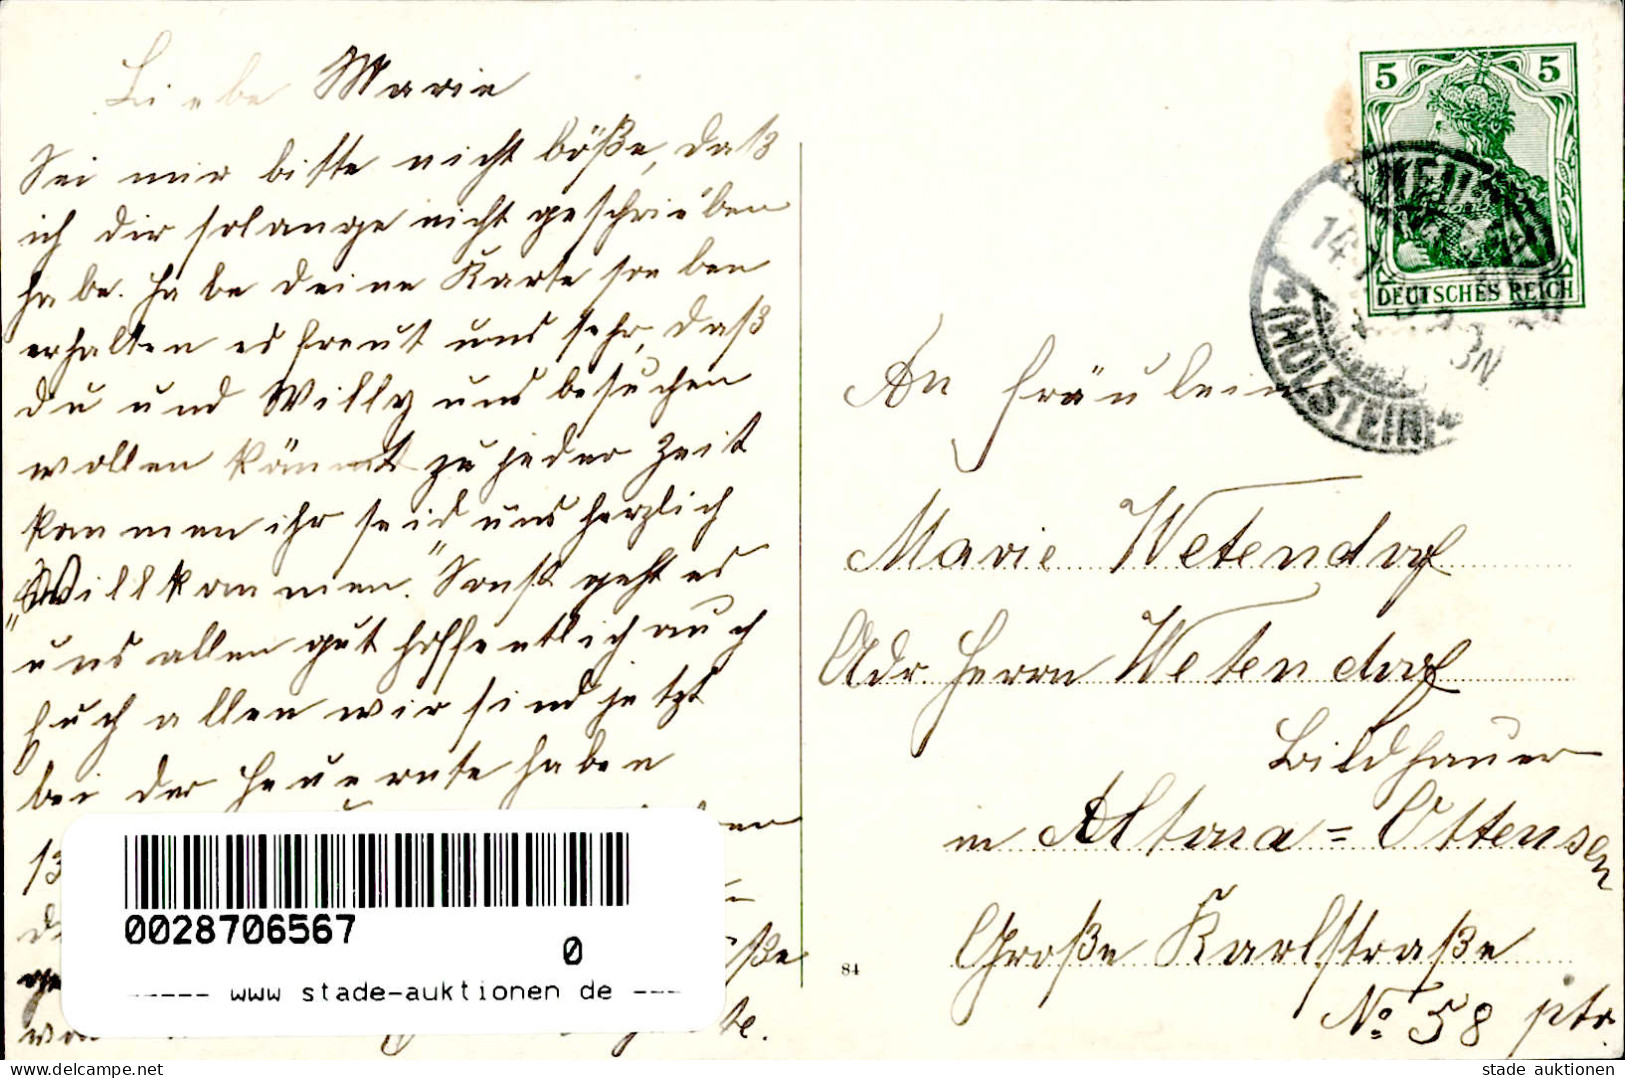 Liebe Marie
Sei mir bitte nicht böße, daß
ich dir solange nicht geschrieben
habe. Habe deine Karte soeben
erhalten es freut uns sehr, daß
du und Willy uns besuchen
wollen könnt zu jeder Zeit
kommen ihr seid uns herzlich
"Willkommen." Sonst geht es
uns allen gut hoffentlich auch
Euch allen wir sind jetzt
bei der Heuernte haben
13
0028706567
0
www stade-auktionen de
5 5
DEUTSCHES REICH
14.7
3N
*(HOLSTEIN)*
An Fräulein
Marie Wetendorf
Adr. Herrn Wetendorf
Bildhauer
in Altona = Ottensen
Große Karlstraße
No 58 ptr.
84
stade auktionen